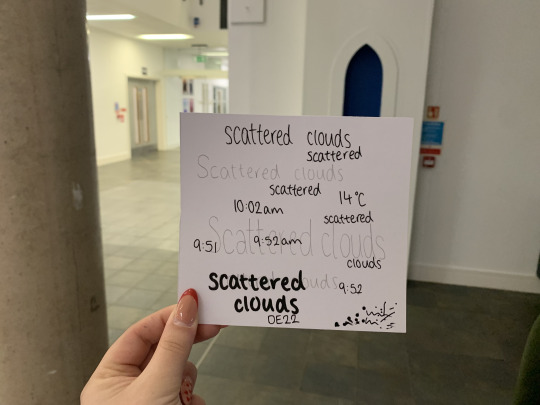 scattered clouds
scattered
Scattered clouds
scattered
14°C
10:02am
scattered
Scattered clouds
9:51
9:52am
clouds
scattered clouds
9:52
Scattered
clouds
DE22